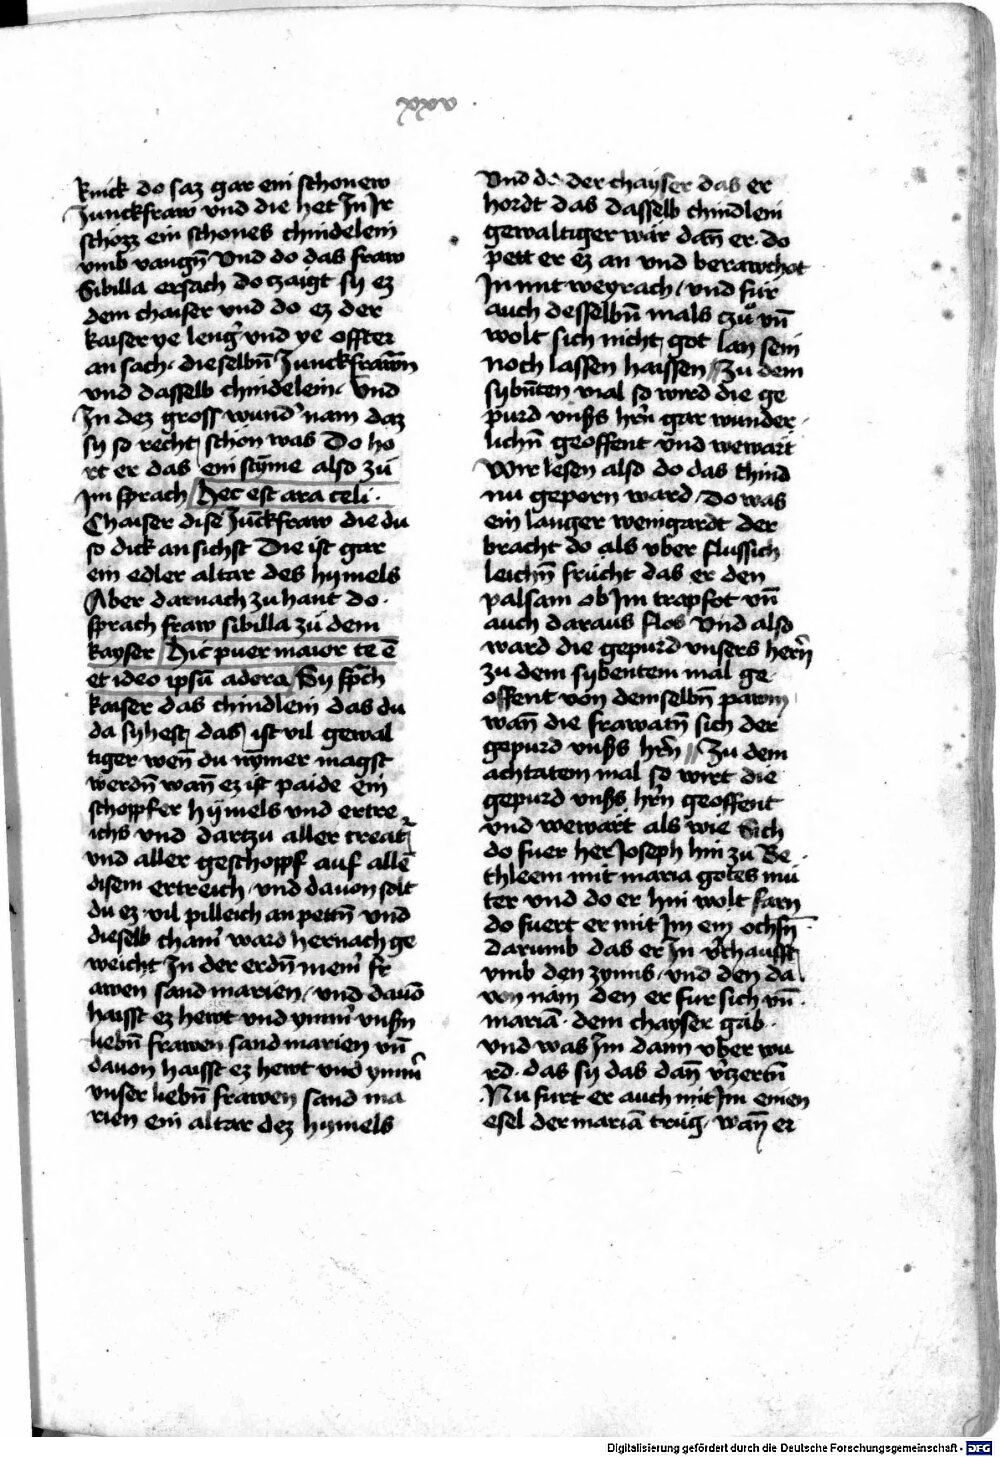 xxv
krick do saz gar ein schonew
Junckfraw vnd die het In Ir
schozz ein schones chindelein
vmb vangn̄ Vnd do das fraw
Sibilla ersach do czaigt sy ez
dem chaiser vnd do ez der
kaiser ye leng̕ vnd ye offter
an sach · dieselbn̄ Junckfrawn̄
vnd dasselb chindelein · Vnd
In dez gross wund̕ nam daz
sy so recht schon was Do ho
rt er das ein stȳme also zu
Im sprach Hec est ara celi ·
Chaiser dise Jūckfraw die du
so dick an sichst Die ist gar
ein edler altar des hymels
Aber darnach zu hant do ·
sprach fraw sibilla zu dem
kayser Hic puer maior te ē
et ideo ipsū adora Sy sp̄ch
kaiser das chindlein das du
da syhest das ist vil gewal
tiger wen̄ du nȳmer magst
werdn̄ wan̄ ez ist paide ein
schoppfer hymels vnd ertre
ichs vnd dartzu aller creat̕
vnd aller geschoppf auf alle̅
disem ertreich · vnd dauon solt
du ez vil pilleich an pettn̄ vnd
dieselb cham̕ ward hernach ge
weicht In der erdn̄ niem̕ fr
awen sand marien / vnd dauō
haisst ez hewt vnd ymm̕ vnsn̄
liebn̄ frawen sand marien vn̄
dauon haisst ez hewt vnd ymm̕
vnser liebn̄ frawen sand ma
rien ein altar dez hymels
Vnd do der chayser das er
hordt das dasselb chindlein
gewaltiger wär dan̄ er · do
pett er ez an vnd berawchot
In mit weyrach / vnd für
auch desselbn̄ mals czu vn̄
wolt sich nicht got lan sein
noch lassen haissen // Zu dem
sybn̄ten mal so wird die ge
purd vnss hr̄n gar wunder
lichn̄ geoffent vnd wewart
Wir lesen also do das chind
nu geporn ward / Do was
ein langer weingardt der
bracht do als vber flussich
leichn̄ frücht das er den
palsam ob Im trapfot vn̄
auch daraus flos Vnd also
ward die gepurd vnsers hern̄
zu dem sybentem mal ge
offent von demselbn̄ pawm
wan̄ die frawatn̄ sich der
gepurd vnsss hr̄n // Zu dem
achtatem mal so wirt die
gepurd vnsss hr̄n geoffent
vnd wewart als wie Sich
do fuer her Joseph hin zu Be
thleem mit maria gotes mu
ter vnd do er hin wolt farn
do fuert er mit Im ein ochsn̄
darumb das er In v̕chaufft
vmb den zynns / vnd den da
von nam den er fur sich vn̄
mariā · dem chayser gab ·
vnd was Im dann vber wu
rd · das sy das dan̄ v̕tzertn̄
Nu furt er auch mit Im einen
esel der mariā trug / wan̄ er
Digitalisierung gefördert durch die Deutsche Forschungsgemeinschaft - DFG